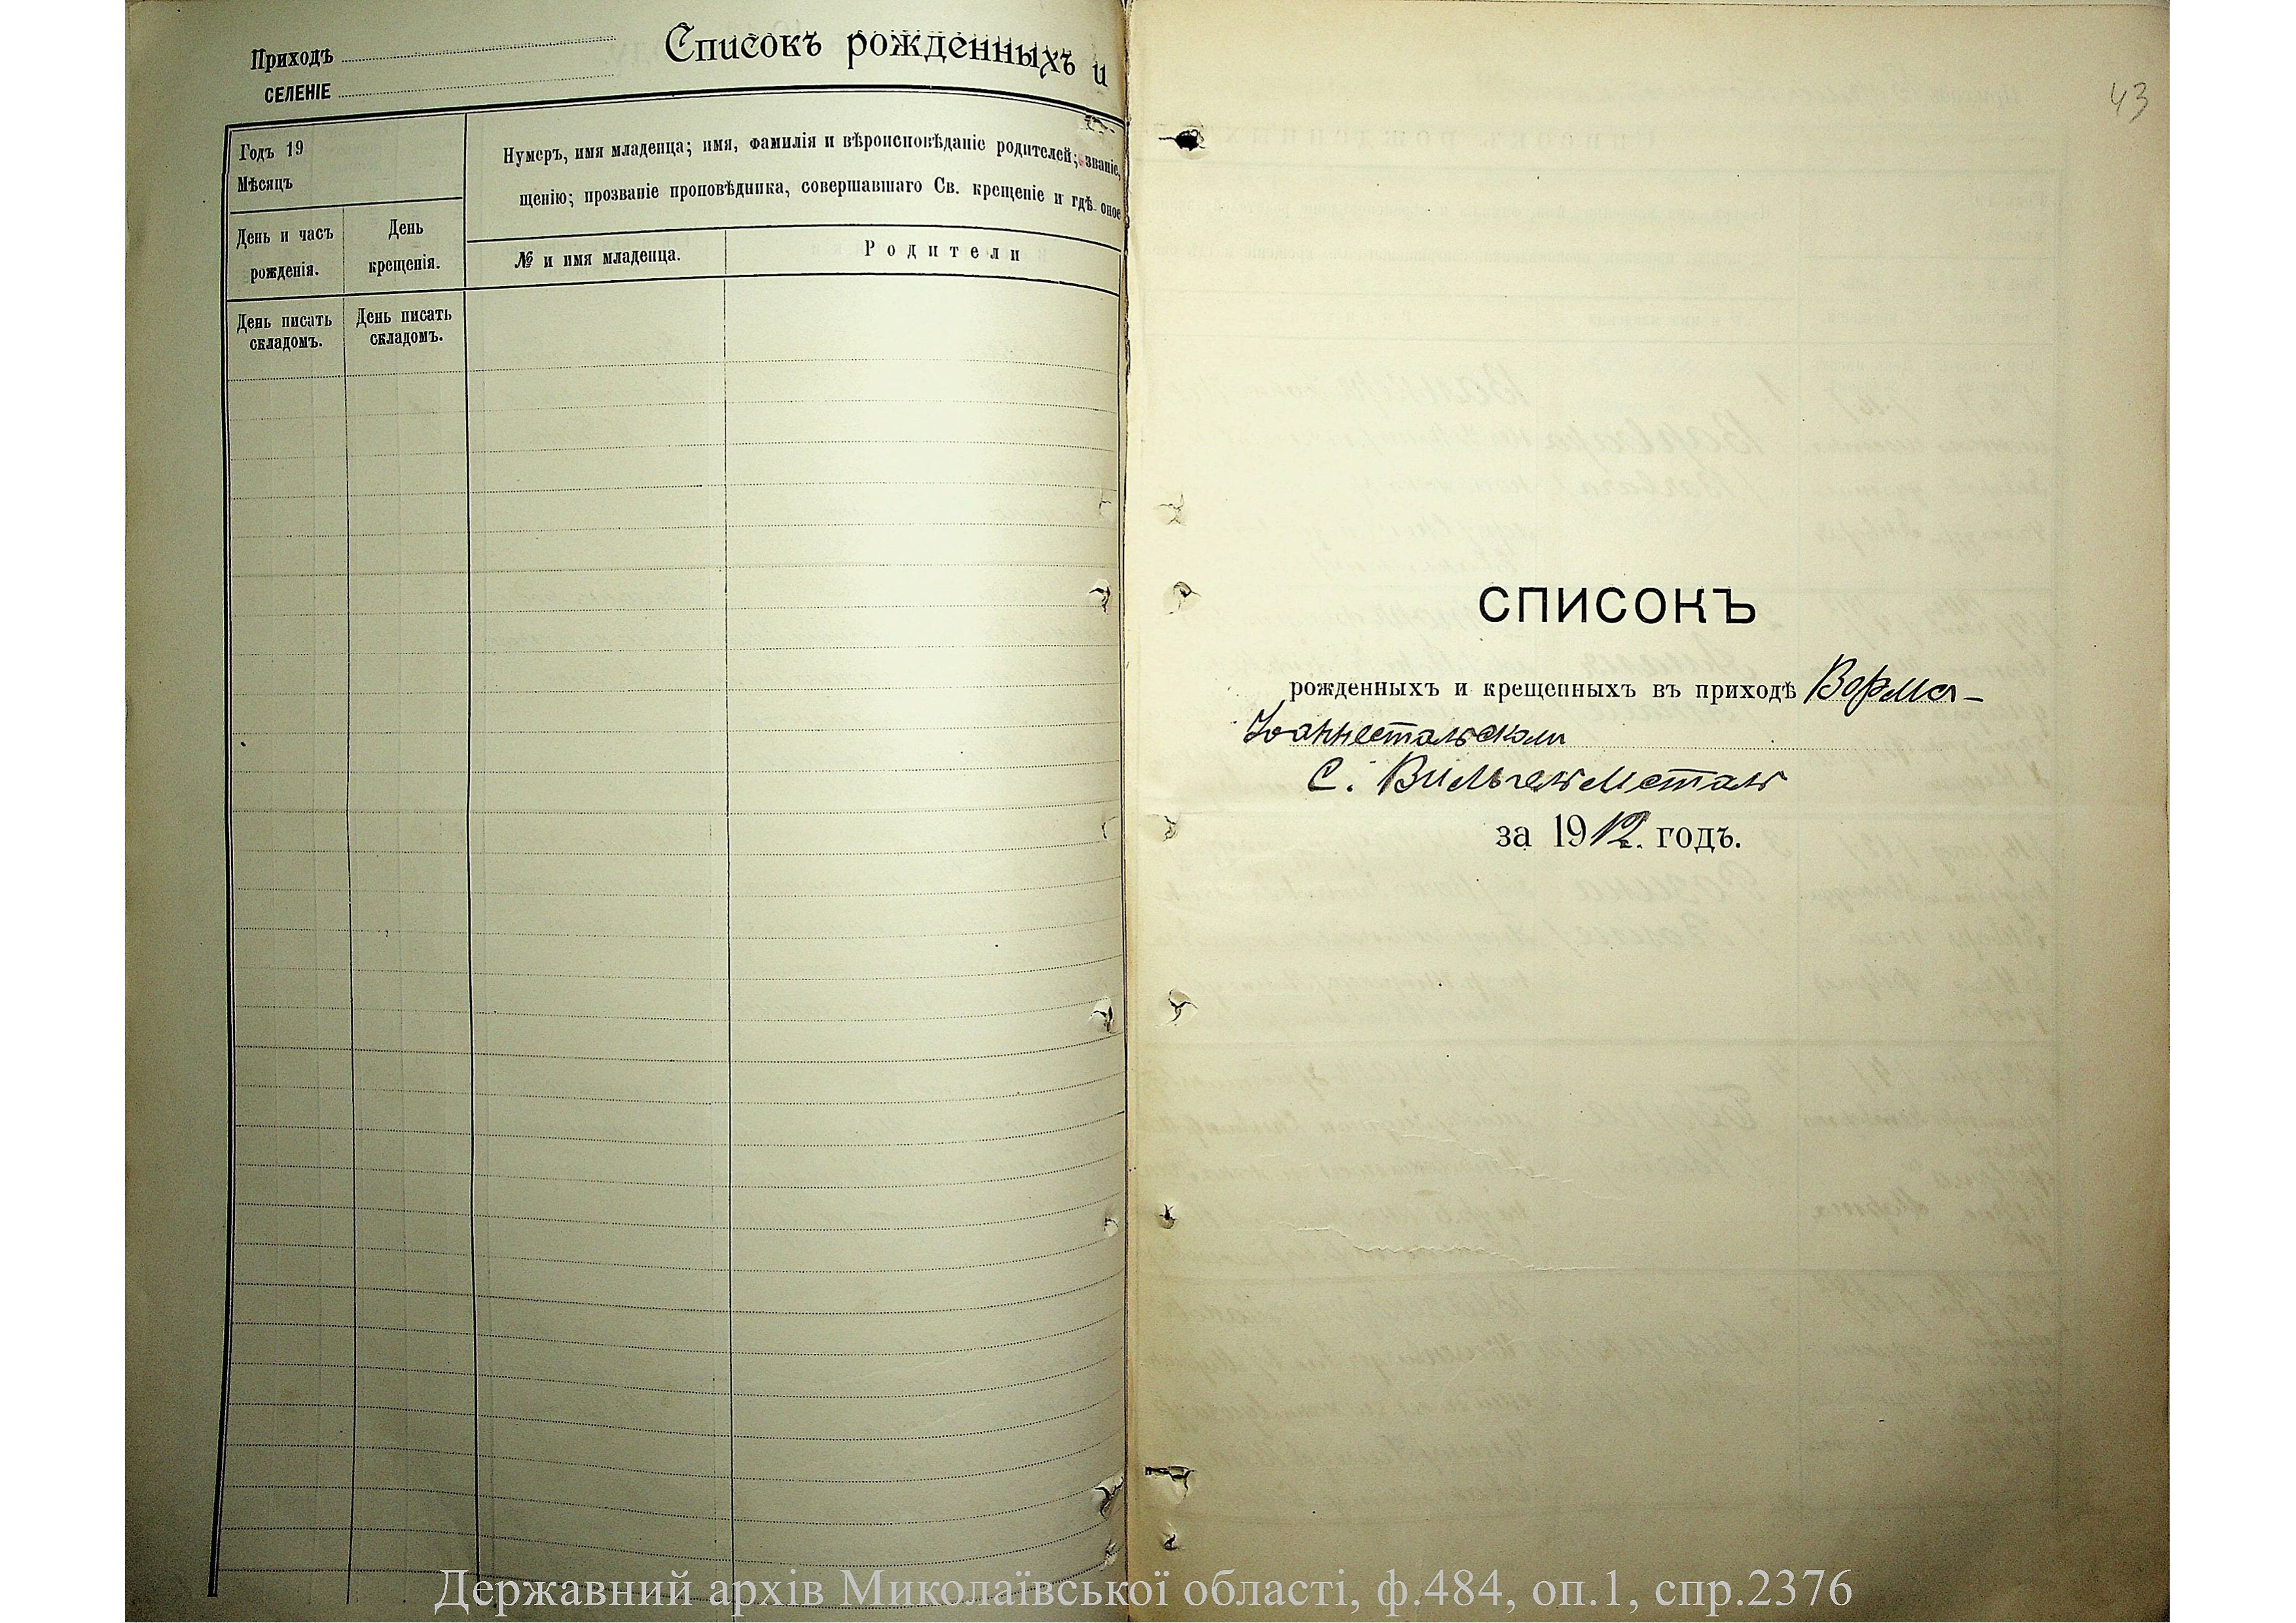 Приходъ
СЕЛЕНІЕ
Списокъ рожденныхъ и
Годъ 19
Мѣсяцъ
День и часъ рожденія.
День крещенія.
Нумеръ, имя младенца; имя, фамилія и вѣроисповѣданіе родителей; званіе,
щенію; прозваніе проповѣдника, совершавшаго Св. крещеніе и гдѣ оное
№ и имя младенца.
Родители
День писать складомъ.
День писать складомъ.
43
СПИСОКЪ
рожденныхъ и крещенныхъ въ приходѣ Вормс-
Іоаннестальском
С. Вильгельмсталь
за 1912. годъ.
Державний архів Миколаївської області, ф.484, оп.1, спр.2376